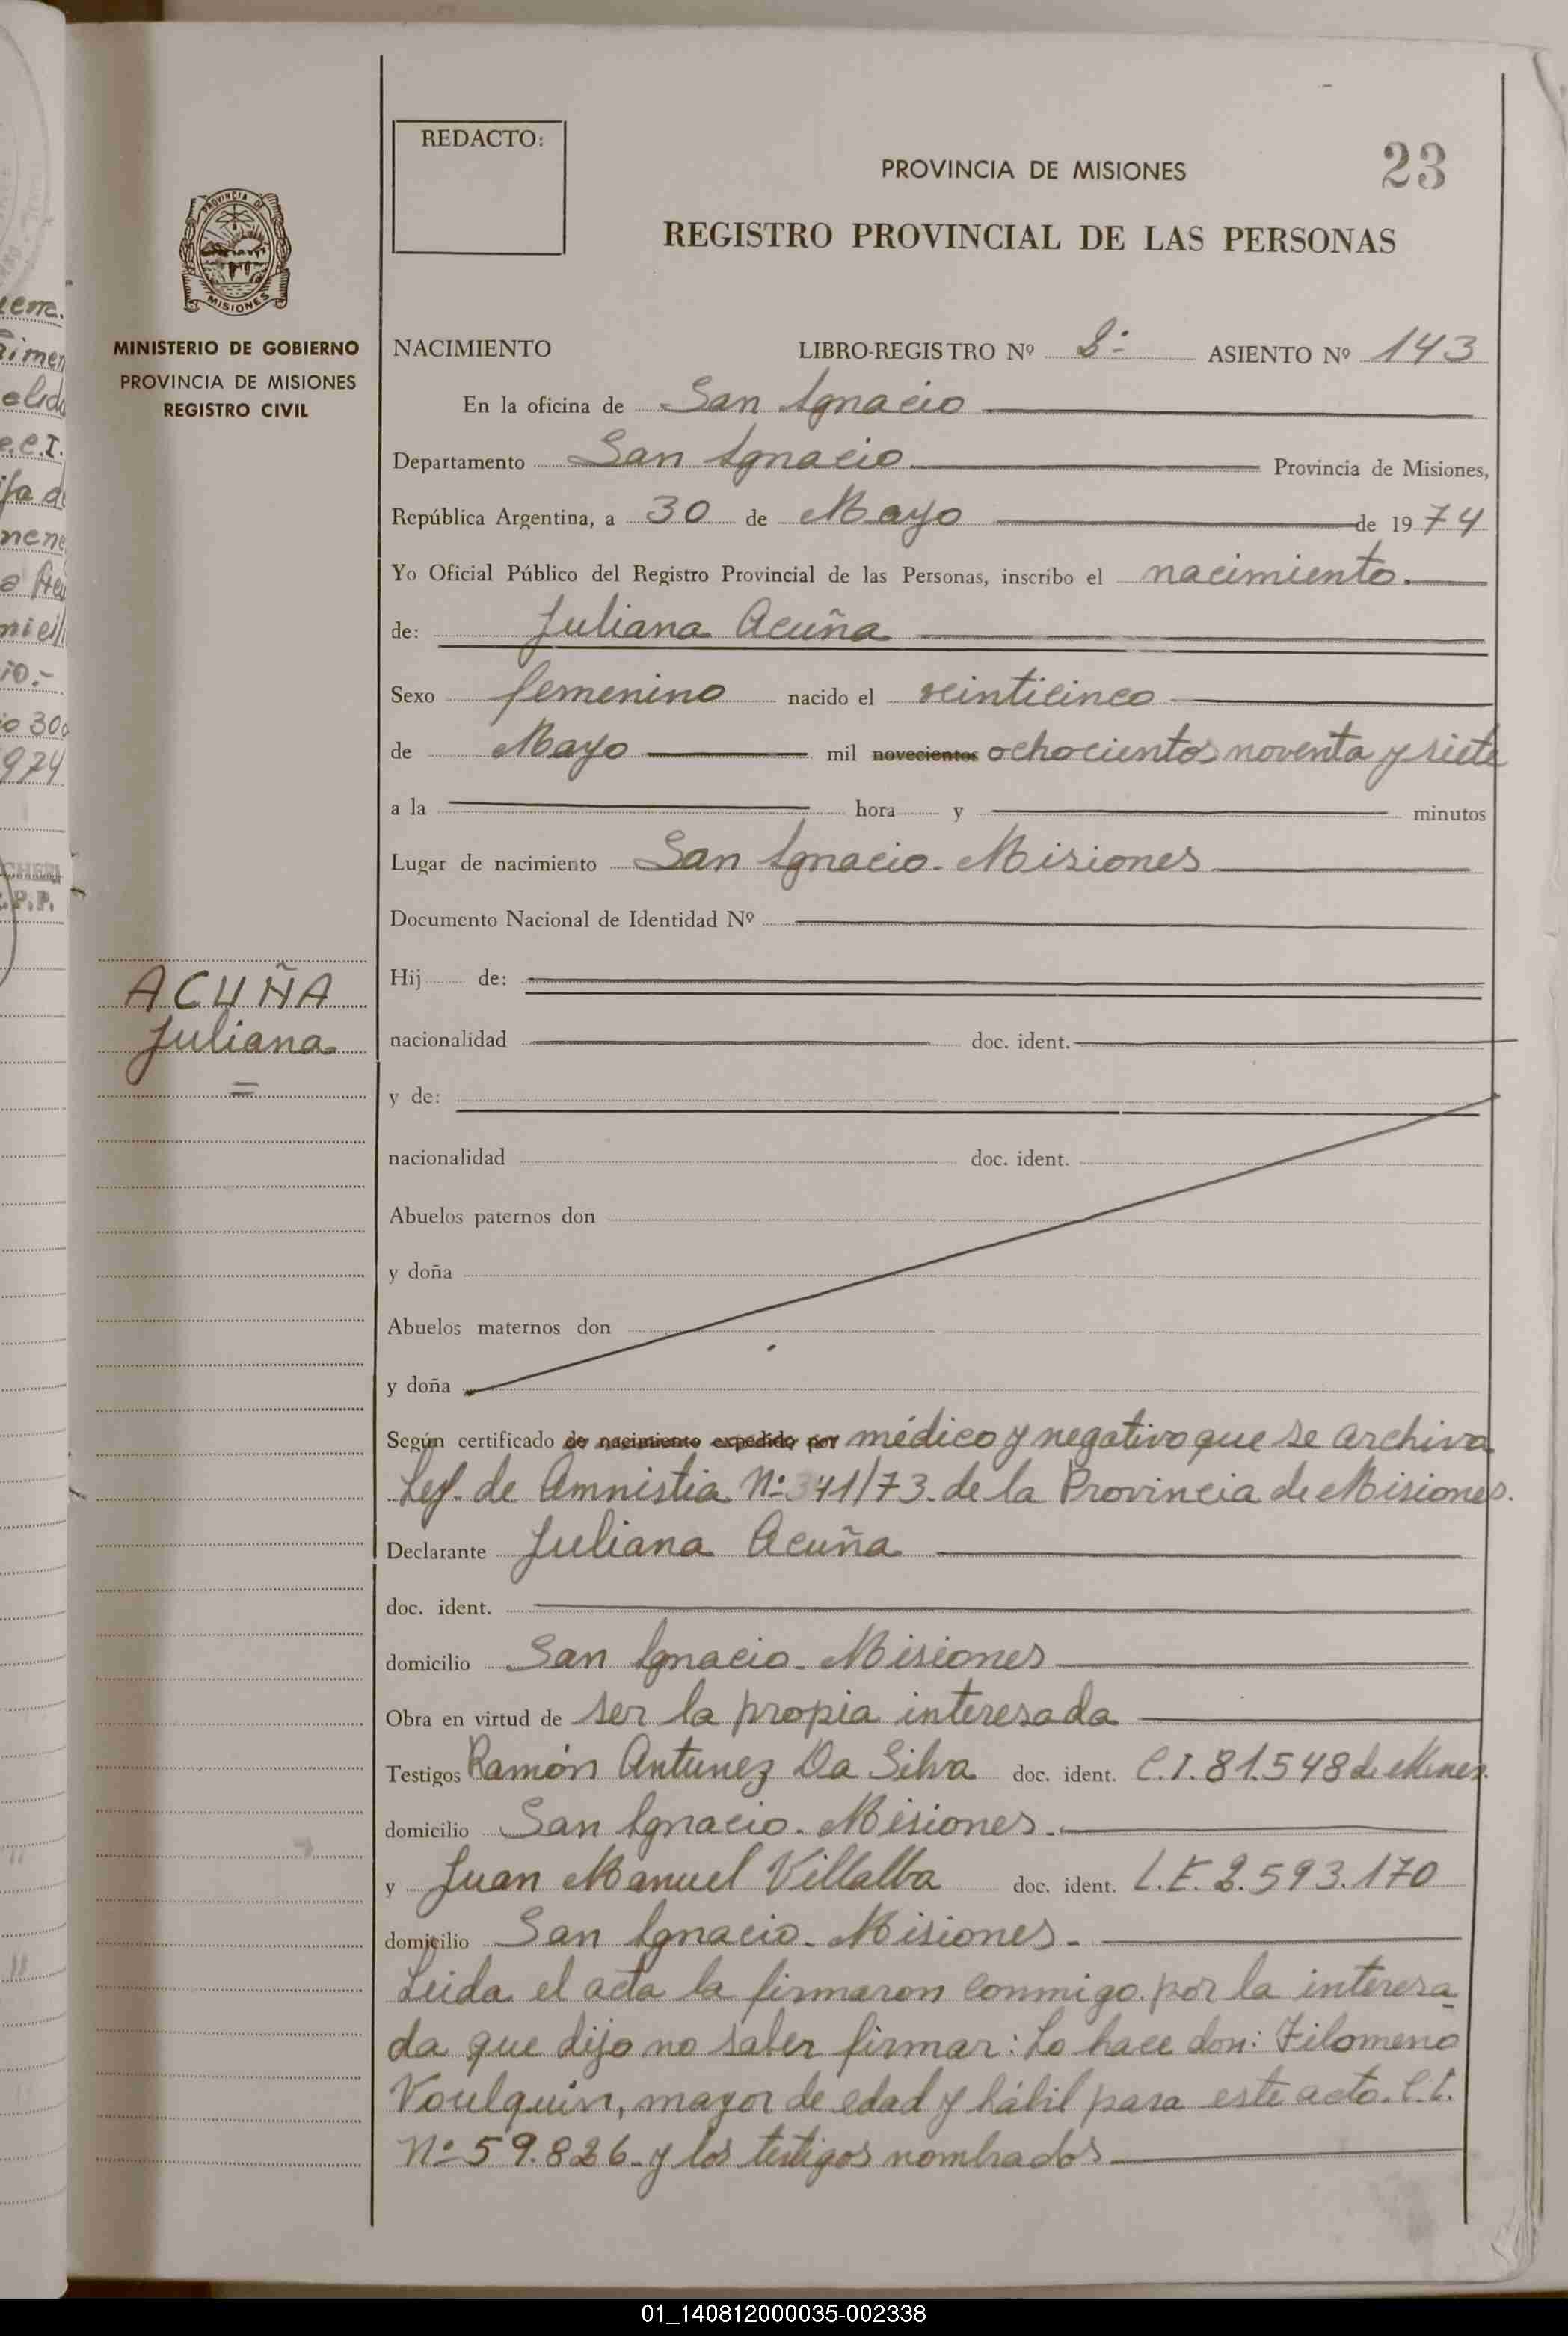 REDACTO:
PROVINCIA DE MISIONES
23
REGISTRO PROVINCIAL DE LAS PERSONAS
PROVINCIA DE
MISIONES
MINISTERIO DE GOBIERNO
PROVINCIA DE MISIONES
REGISTRO CIVIL
NACIMIENTO LIBRO-REGISTRO Nº 2º ASIENTO Nº 143
En la oficina de San Ignacio
Departamento San Ignacio Provincia de Misiones,
República Argentina, a 30 de Mayo de 1974
Yo Oficial Público del Registro Provincial de las Personas, inscribo el nacimiento.
de: Juliana Acuña
Sexo femenino nacido el veinticinco
de Mayo mil novecientos ochocientos noventa y siete
a la hora y minutos
Lugar de nacimiento San Ignacio. Misiones
Documento Nacional de Identidad Nº
ACUÑA
Juliana
Hij de:
nacionalidad doc. ident.
y de:
nacionalidad doc. ident.
Abuelos paternos don
y doña
Abuelos maternos don
y doña
Según certificado de nacimiento expedido por médico y negativo que se archiva
Ley. de Amnistia Nº 341/73. de la Provincia de Misiones.
Declarante Juliana Acuña
doc. ident.
domicilio San Ignacio. Misiones
Obra en virtud de ser la propia interesada
Testigos Ramón Antunez Da Silva doc. ident. C.I. 81.548 de Mnes.
domicilio San Ignacio. Misiones.
y Juan Manuel Villalba doc. ident. L.E. 2.593.170
domicilio San Ignacio. Misiones.
Leida el acta la firmaron conmigo por la interesa
da que dijo no saber firmar: Lo hace don: Filomeno
Voulquin, mayor de edad y hábil para este acto. C.I.
Nº 59.826. y los testigos nombrados
01_140812000035-002338